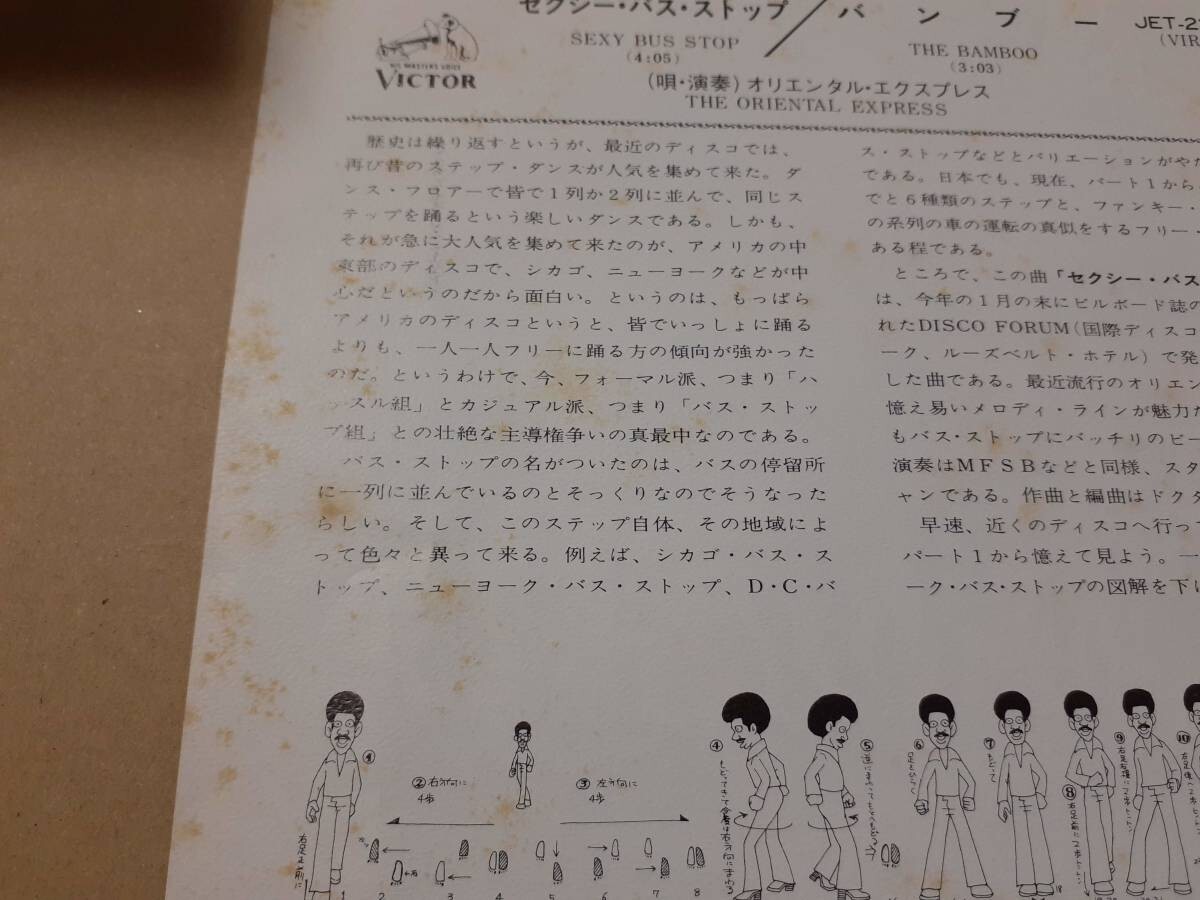 セクシー・バス・ストップ／バンブー
JET-2
SEXY BUS STOP
(4:05)
THE BAMBOO
(3:03)
(VIR
HIS MASTER'S VOICE
VICTOR
(唄・演奏) オリエンタル・エクスプレス
THE ORIENTAL EXPRESS
歴史は繰り返すというが、最近のディスコでは、
再び昔のステップ・ダンスが人気を集めて来た。ダ
ンス・フロアーで皆で1列か2列に並んで、同じス
テップを踊るという楽しいダンスである。しかも、
それが急に大人気を集めて来たのが、アメリカの中
東部のディスコで、シカゴ、ニューヨークなどが中
心だというのだから面白い。というのは、もっぱら
アメリカのディスコというと、皆でいっしょに踊る
よりも、一人一人フリーに踊る方の傾向が強かった
のだ。というわけで、今、フォーマル派、つまり「ハ
ッスル組」とカジュアル派、つまり「バス・ストッ
プ組」との壮絶な主導権争いの真最中なのである。
バス・ストップの名がついたのは、バスの停留所
に一列に並んでいるのとそっくりなのでそうなった
らしい。そして、このステップ自体、その地域によ
って色々と異って来る。例えば、シカゴ・バス・ス
トップ、ニューヨーク・バス・ストップ、D・C・バ
ス・ストップなどとバリエーションがやた
である。日本でも、現在、パート1から
でと6種類のステップと、ファンキー・
の系列の車の運転の真似をするフリー・
ある程である。
ところで、この曲「セクシー・バス
は、今年の1月の末にビルボード誌の
れたDISCO FORUM(国際ディスコ
ーク、ルーズベルト・ホテル)で発
した曲である。最近流行のオリエン
憶え易いメロディ・ラインが魅力だ
もバス・ストップにバッチリのビー
演奏はMFSBなどと同様、スタ
ャンである。作曲と編曲はドクタ
早速、近くのディスコへ行っ
パート1から憶えて見よう。一
ーク・バス・ストップの図解を下に
①
右足を前に
②右方向に
4歩
③左方向に
4歩
④
⑤
⑥
足をひらく
⑦
もどって
⑧
⑨
⑩
1 2 3 4 5 6 7 8